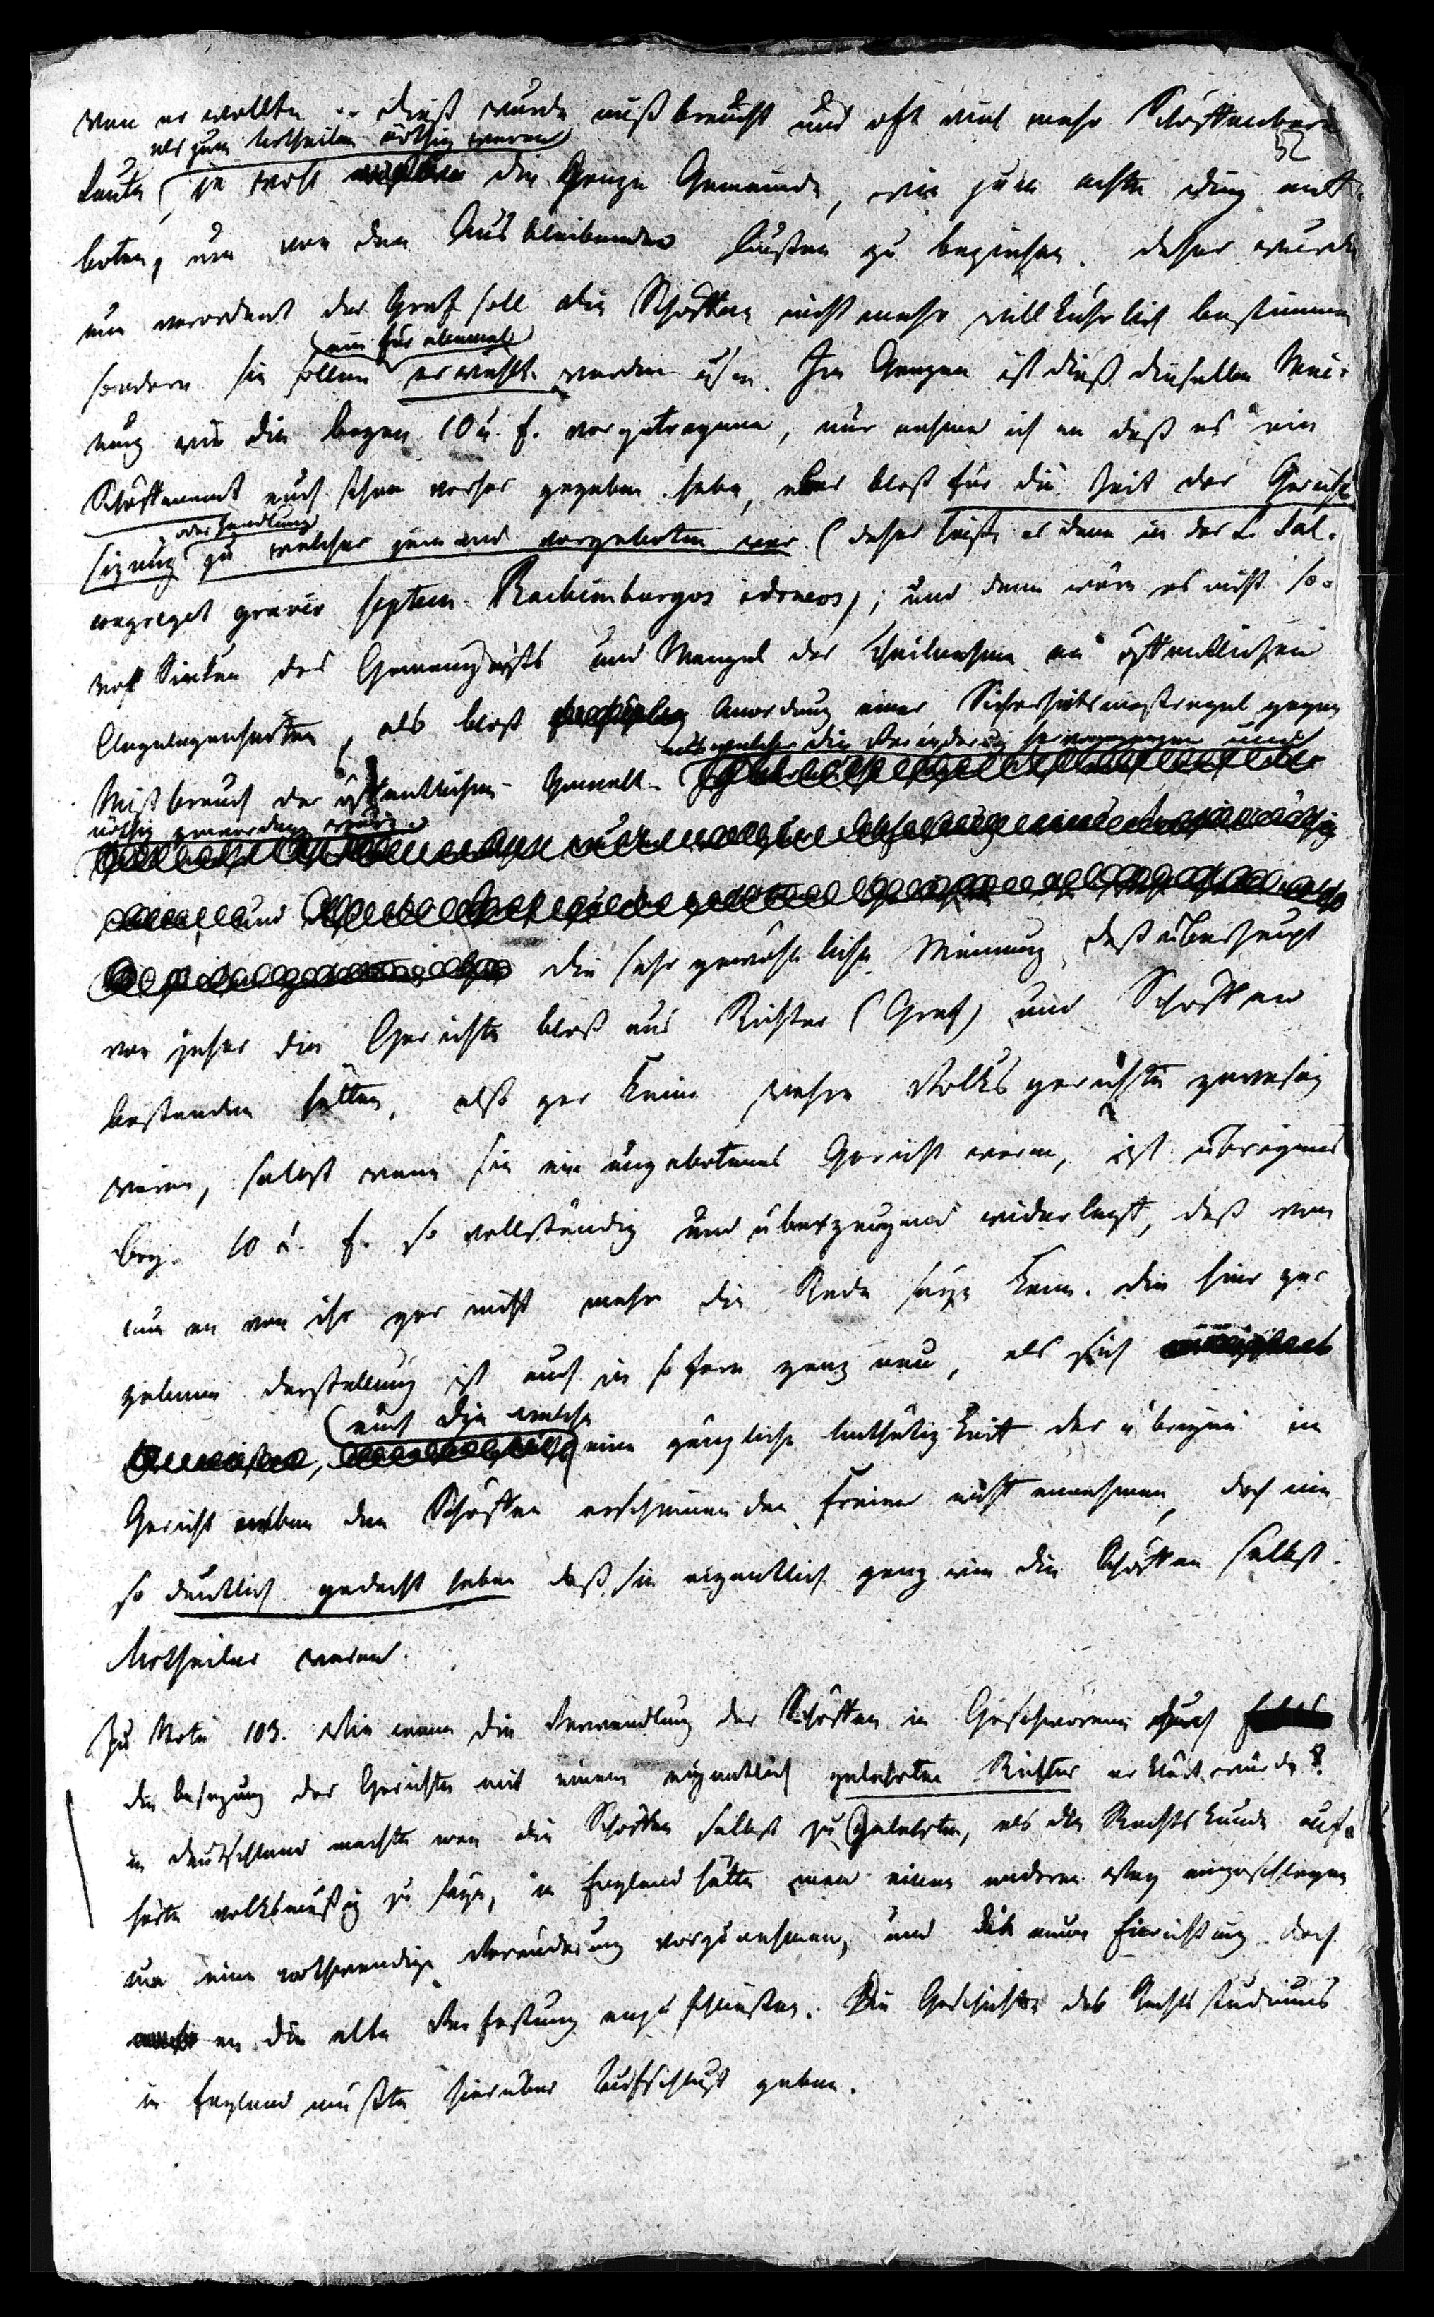 wen er wollte .. dieß wurde mißbraucht und oft viel mehr Schöffenbare
52
als zum Urtheilen nöthig waren
Leute, ja wohl die ganze Gemeinde, wie zum achten Ding entt-
boten, um von den Ausbleibenden Bußen zu beziehen. Daher wurde
nun verordnet der Graf soll die Schöffen nicht mehr willkührlich bestimmen
ein für allemal
sondern sie sollen erwählt werden usw. Im Ganzen ist dieß dieselbe Mei-
nung wie die Bogen 10 u. f. vorgetragene, nur nehme ich an daß es ein
Schöffenamt auch schon vorher gegeben habe, aber bloß für die Zeit der Gerichts-
oder Handlung
sizung zu welcher jemand vorgeboten war (daher heißt es denn in der L. Sal.
congreget gravio septem Rachimburgos idoneos); und dann wäre es nicht so-
wohl Sinken des Gemeingeists und Mangel der Theilnahme an öffentlichen
Angelegenheiten, als bloß Anordnung einer Sicherheitsmaßregel gegen
aus welcher die Veränderung hervorgegangen und
Mißbrauch der öffentlichen Gewalt
nöthig geworden wäre.
und
die sehr gewöhnliche Meinung, daß überhaupt
von jeher die Gerichte bloß aus Richter (Graf) und Schöffen
bestanden hätten, also gar keine wahre Volksgerichte gewesen
wären, selbst wenn sie ein ungebotenes Gericht waren, ist übrigens
Bog. 10 u. f. so vollständig und überzeugend widerlegt, daß von
nun an von ihr gar nicht mehr die Rede seyn kann. Die hier ge-
gebene Darstellung ist auch in so fern ganz neu, als sich
auch die welche
eine gänzliche Unthätigkeit der übrigen im
Gericht neben den Schöffen erscheinenden Freien nicht annehmen, doch nie
so deutlich gedacht haben daß sie eigentlich ganz wie die Schöffen selbst
Urtheiler waren.
Zu Note 103. Wie wenn die Verwandlung der Schöffen in Geschworene durch
die Besezung der Gerichte mit einem eigentlich gelehrten Richter erklärt würde?
in Deutschland machte man die Schöffen selbst zu Gelehrten, als die Rechtskunde auf-
hörte volksmäßig zu seyn, in England hätte man einen anderen Weg eingeschlagen
um eine nothwendige Veränderung vorzunehmen, und die neue Einrichtung doch
an die alte Verfassung anzuschließen. Die Geschichte des Rechtsstudiums
in England müßte hierüber Aufschluß geben.